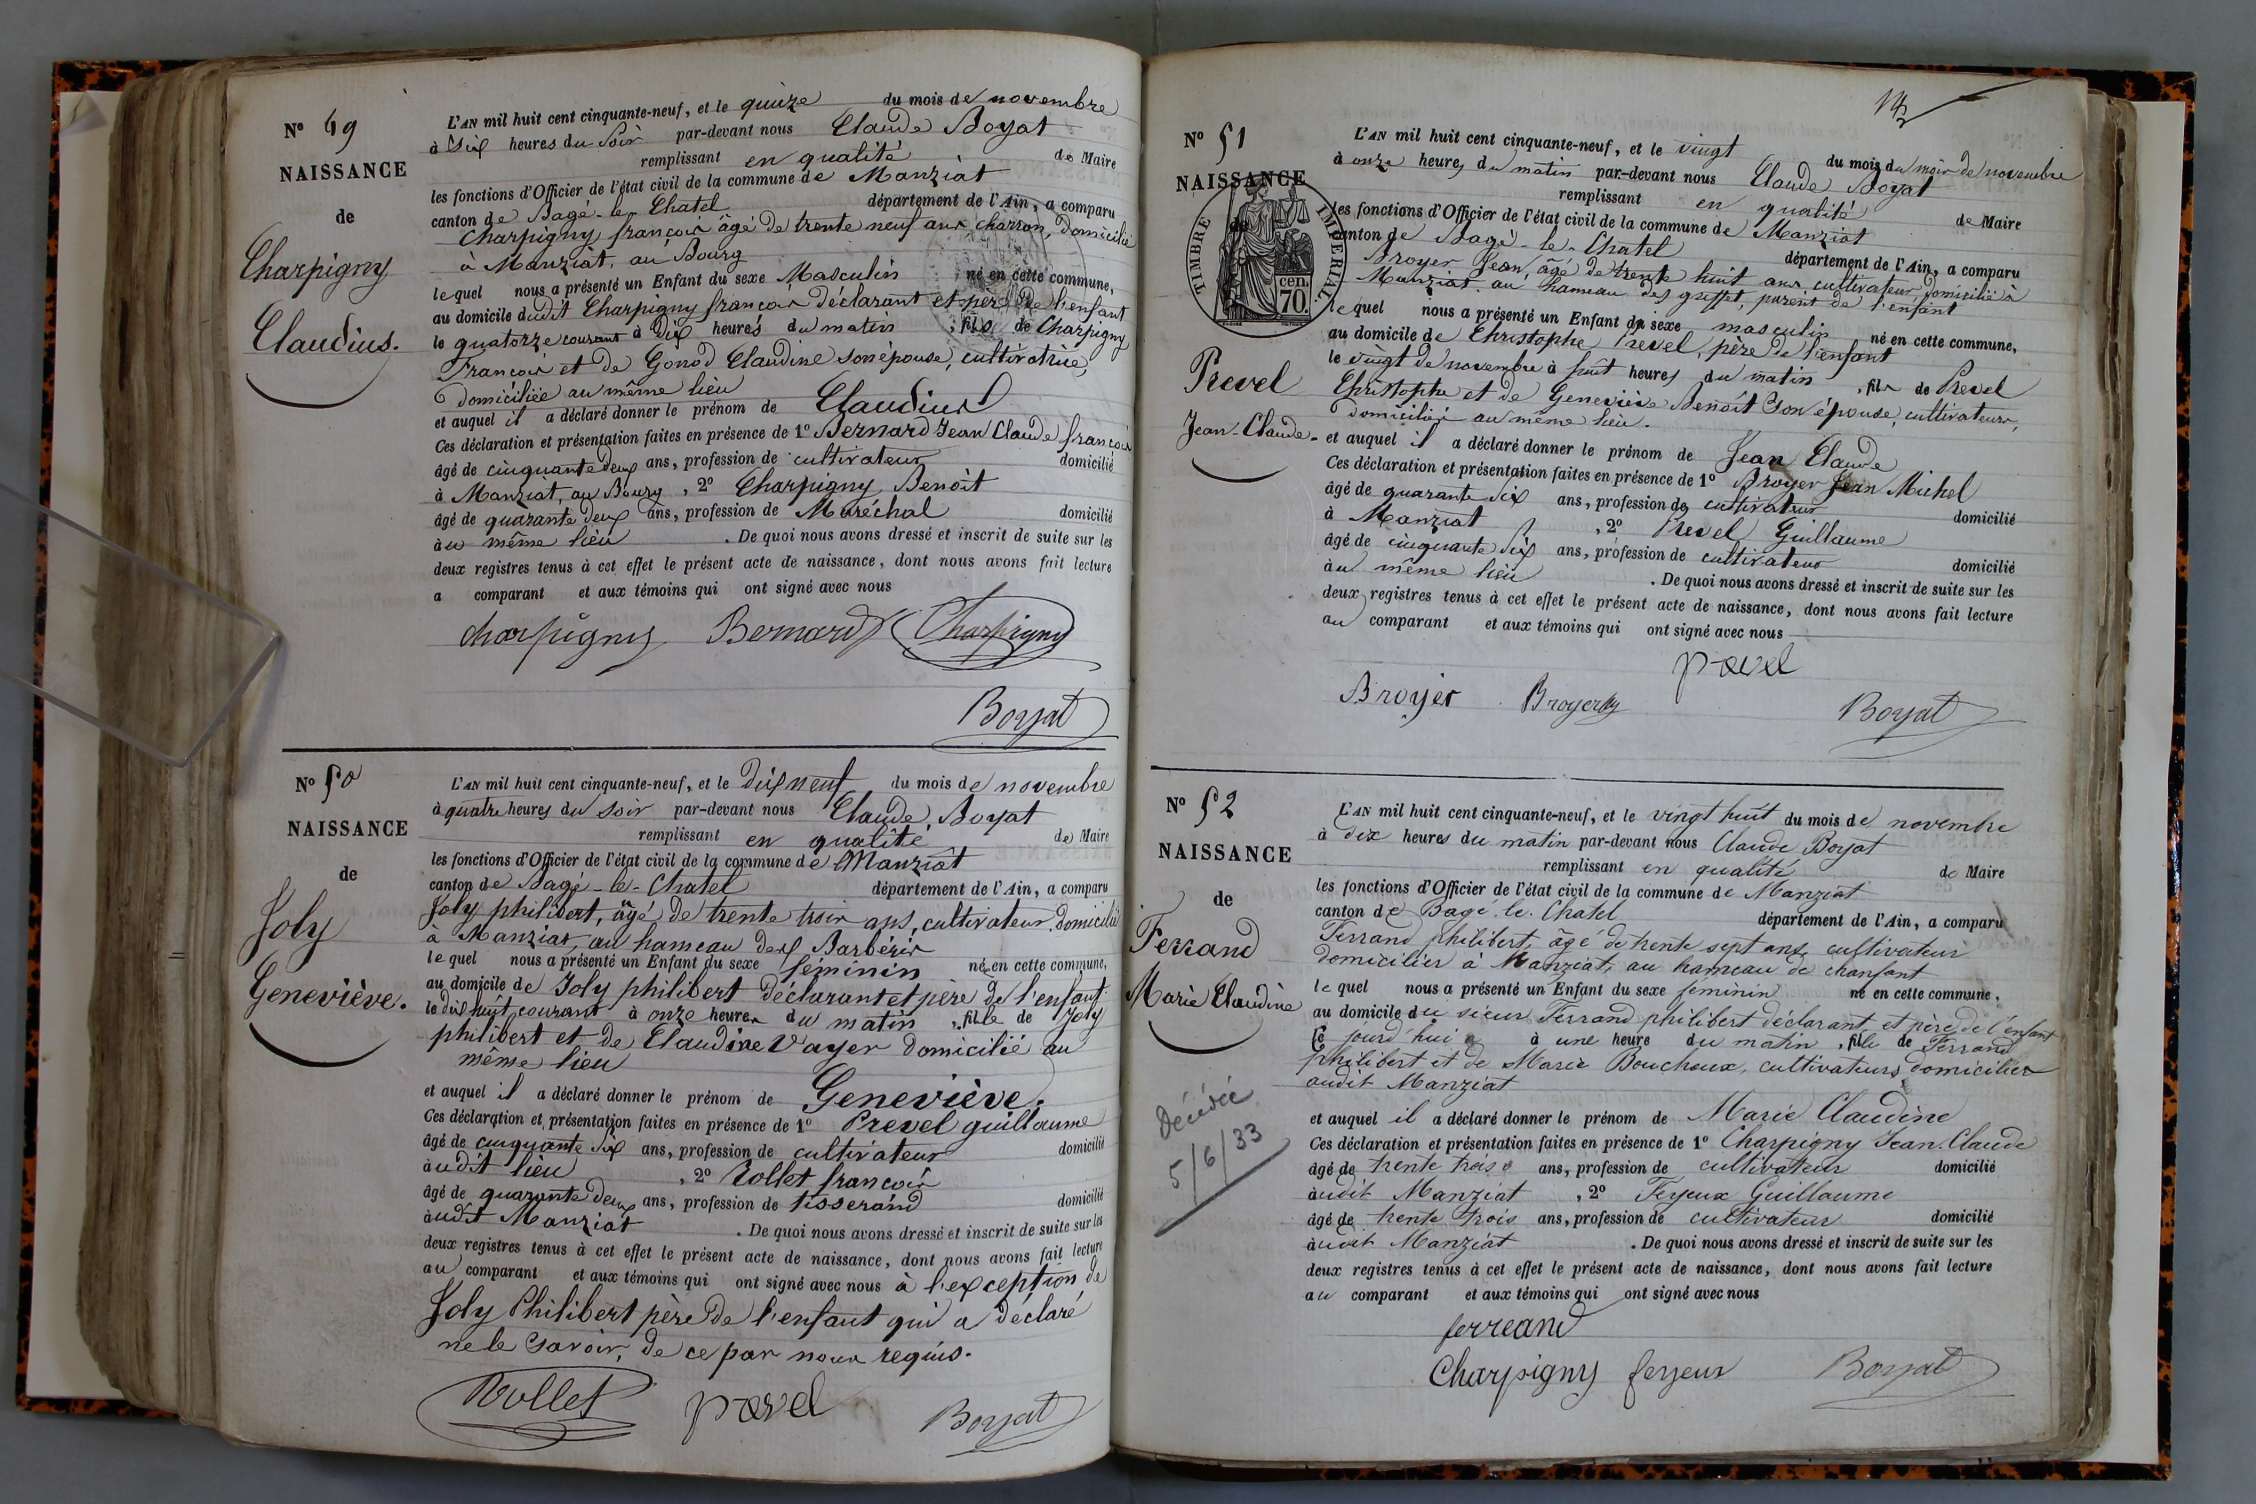 N° 49
NAISSANCE
de
Charpigny
Claudius.
L'AN mil huit cent cinquante-neuf, et le quinze du mois de novembre
à six heures du soir par-devant nous Claude Boyat
remplissant en qualité de Maire
les fonctions d'Officier de l'état civil de la commune de Manziat
canton de Bagé-le-Chatel département de l'Ain, a comparu
Charpigny françois âgé de trente neuf ans charron, domicilié
à Manziat, au Bourg
lequel nous a présenté un Enfant du sexe Masculin né en cette commune,
au domicile dudit Charpigny françois déclarant et père de l'enfant
le quatorze courant à dix heures du matin , fils de Charpigny
François et de Gonod Claudine son épouse, cultivatrice,
domiciliée au même lieu
et auquel il a déclaré donner le prénom de Claudius
Ces déclaration et présentation faites en présence de 1° Bernard Jean Claude françois
âgé de cinquante deux ans, profession de cultivateur domicilié
à Manziat, au Bourg , 2° Charpigny Benoît
âgé de quarante deux ans, profession de Maréchal domicilié
au même lieu . De quoi nous avons dressé et inscrit de suite sur les
deux registres tenus à cet effet le présent acte de naissance, dont nous avons fait lecture
a comparant et aux témoins qui ont signé avec nous
charpigny Bernard Charpigny
Boyat
N° 50
NAISSANCE
de
Joly
Geneviève.
L'AN mil huit cent cinquante-neuf, et le dix neuf du mois de novembre
à quatre heures du soir par-devant nous Claude Boyat
remplissant en qualité de Maire
les fonctions d'Officier de l'état civil de la commune de Manziat
canton de Bagé-le-Chatel département de l'Ain, a comparu
Joly philibert, âgé de trente trois ans, cultivateur domicilié
à Manziat, au hameau des Barbéris
lequel nous a présenté un Enfant du sexe féminin né en cette commune,
au domicile de Joly philibert déclarant et père de l'enfant
le dix huit courant à onze heures du matin , fille de Joly
philibert et de Claudine Vayer domicilié au
même lieu
et auquel il a déclaré donner le prénom de Geneviève.
Ces déclaration et présentation faites en présence de 1° Prevel guillaume
âgé de cinquante six ans, profession de cultivateur domicilié
audit lieu , 2° Rollet françois
âgé de quarante deux ans, profession de tisserand domicilié
audit Manziat . De quoi nous avons dressé et inscrit de suite sur les
deux registres tenus à cet effet le présent acte de naissance, dont nous avons fait lecture
au comparant et aux témoins qui ont signé avec nous à l'exception de
Joly Philibert père de l'enfant qui a déclaré
ne le savoir, de ce par nous requis.
Rollet prevel Boyat
N° 51
NAISSANCE
de
TIMBRE IMPERIAL
70 cen.
Prevel
Jean-Claude.
L'AN mil huit cent cinquante-neuf, et le vingt du mois du mois de novembre
à onze heures du matin par-devant nous Claude Boyat
remplissant en qualité de Maire
les fonctions d'Officier de l'état civil de la commune de Manziat
canton de Bagé-le-Chatel département de l'Ain, a comparu
Broyer Jean, âgé de trente huit ans cultivateur, domicilié à
Manziat au hameau des greffet, parent de l'enfant
lequel nous a présenté un Enfant du sexe masculin né en cette commune,
au domicile de Christophe Prevel, père de l'enfant
le vingt de novembre à huit heures du matin , fils de Prevel
Christophe et de Geneviève Benoît son épouse, cultivateurs,
domiciliés au même lieu.
et auquel il a déclaré donner le prénom de Jean Claude
Ces déclaration et présentation faites en présence de 1° Broyer Jean Michel
âgé de quarante six ans, profession de cultivateur domicilié
à Manziat , 2° Prevel Guillaume
âgé de cinquante six ans, profession de cultivateur domicilié
au même lieu . De quoi nous avons dressé et inscrit de suite sur les
deux registres tenus à cet effet le présent acte de naissance, dont nous avons fait lecture
au comparant et aux témoins qui ont signé avec nous
prevel
Broyer Broyer Boyat
N° 52
NAISSANCE
de
Ferrand
Marie Claudine
Décédée
5/6/33
L'AN mil huit cent cinquante-neuf, et le vingt huit du mois de novembre
à dix heures du matin par-devant nous Claude Boyat
remplissant en qualité de Maire
les fonctions d'Officier de l'état civil de la commune de Manziat
canton de Bagé-le-Chatel département de l'Ain, a comparu
Ferrand philibert, âgé de trente sept ans cultivateur
domicilier à Manziat, au hameau de chanfant
lequel nous a présenté un Enfant du sexe féminin né en cette commune,
au domicile du sieur Ferrand philibert déclarant et père de l'enfant
Ce jourd'hui à une heure du matin , fille de Ferrand
philibert et de Marie Bouchoux, cultivateurs domicilier
audit Manziat
et auquel il a déclaré donner le prénom de Marie Claudine
Ces déclaration et présentation faites en présence de 1° Charpigny Jean-Claude
âgé de trente trois ans, profession de cultivateur domicilié
audit Manziat , 2° Feyeux Guillaume
âgé de trente trois ans, profession de cultivateur domicilié
audit Manziat . De quoi nous avons dressé et inscrit de suite sur les
deux registres tenus à cet effet le présent acte de naissance, dont nous avons fait lecture
au comparant et aux témoins qui ont signé avec nous
ferreand
Charpigny feyeux Boyat